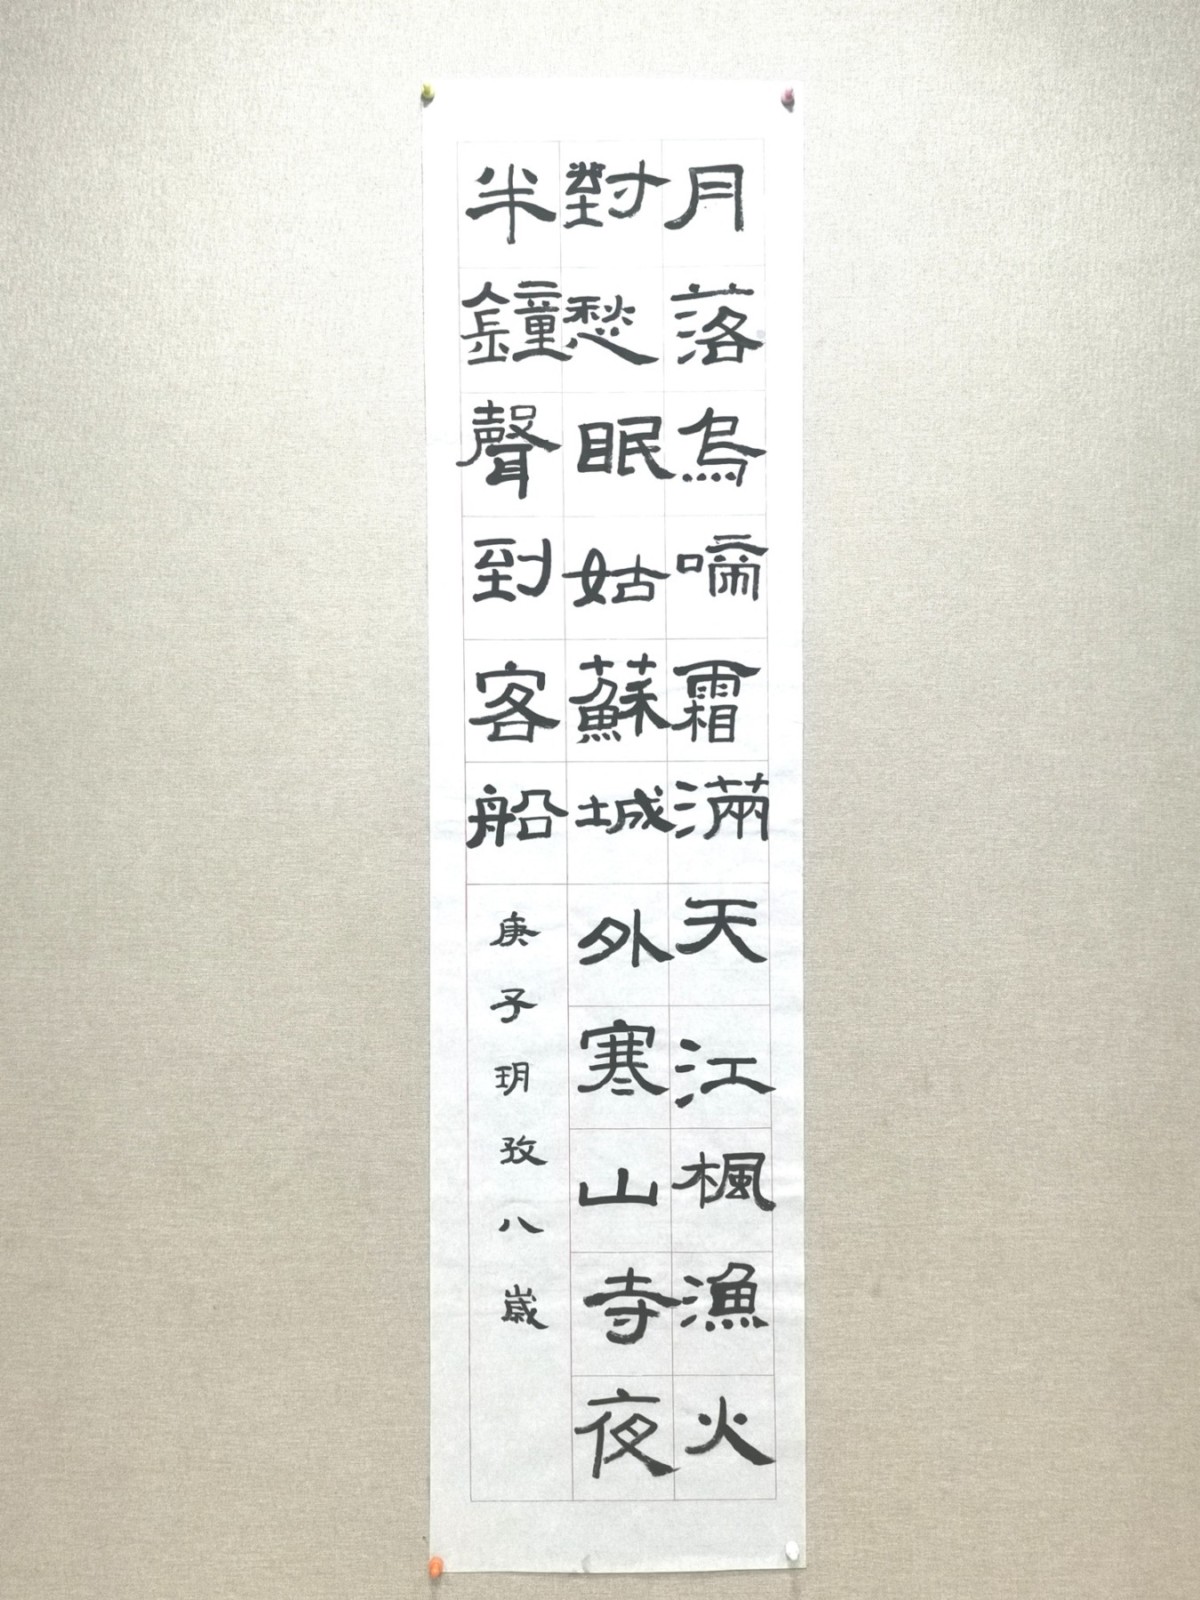 月落烏啼霜滿天江楓漁火
對愁眠姑蘇城外寒山寺夜
半鐘聲到客船
庚子玥孜八歲